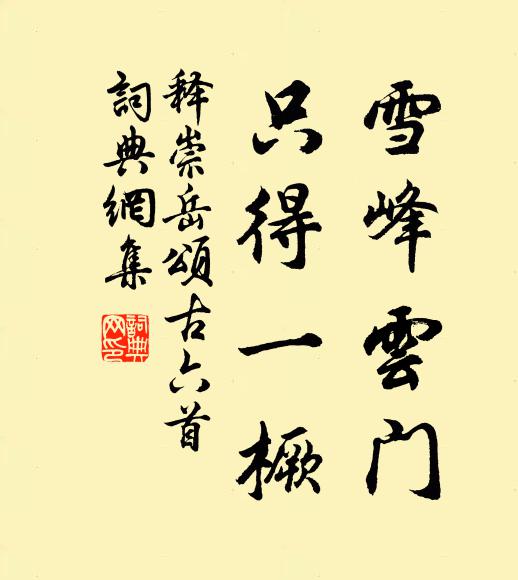 雪峰雲门
只得一橛
释崇岳頌古六首
詞典網集
詞典
网印